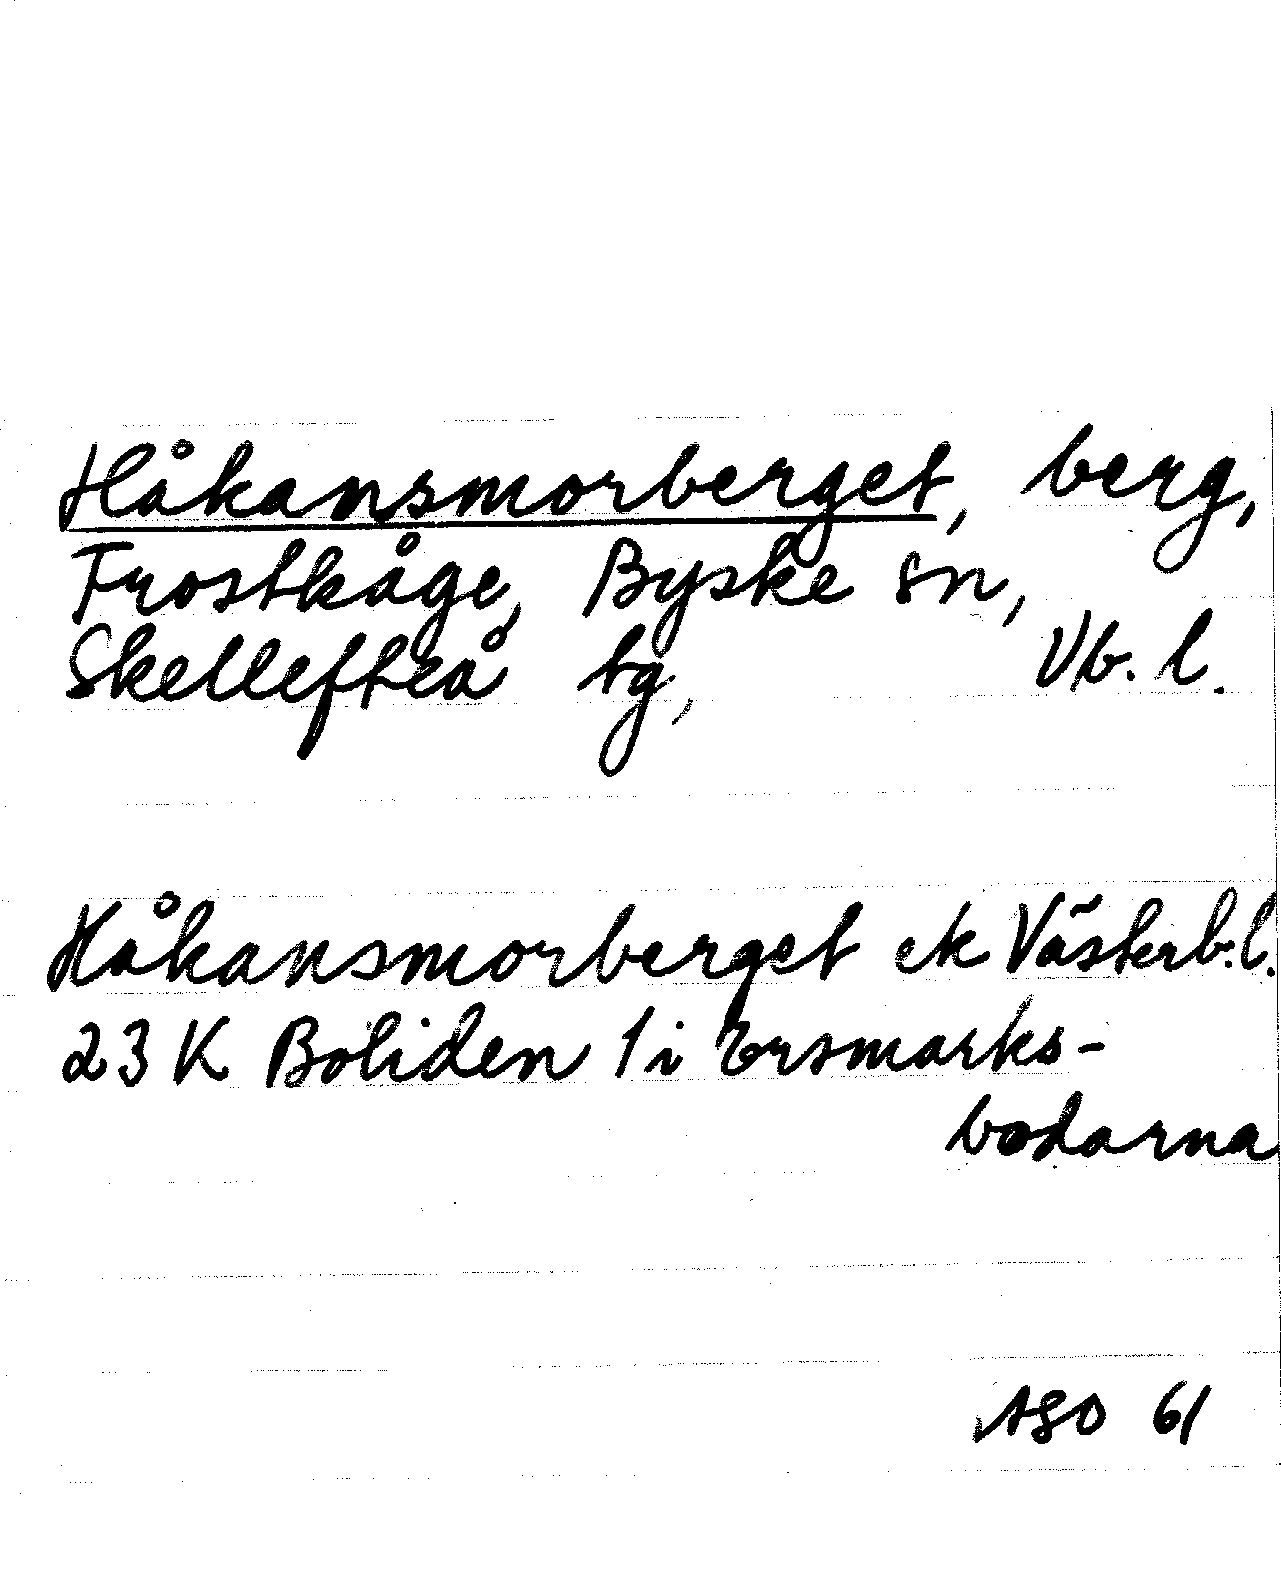 Håkansmorberget, berg,
Frostkåge, Byske sn,
Skellefteå tg, Vb. l.
Håkansmorberget ek Västerb. l.
23 K Boliden 1 i Ersmarks-
bodarna
ASO 61